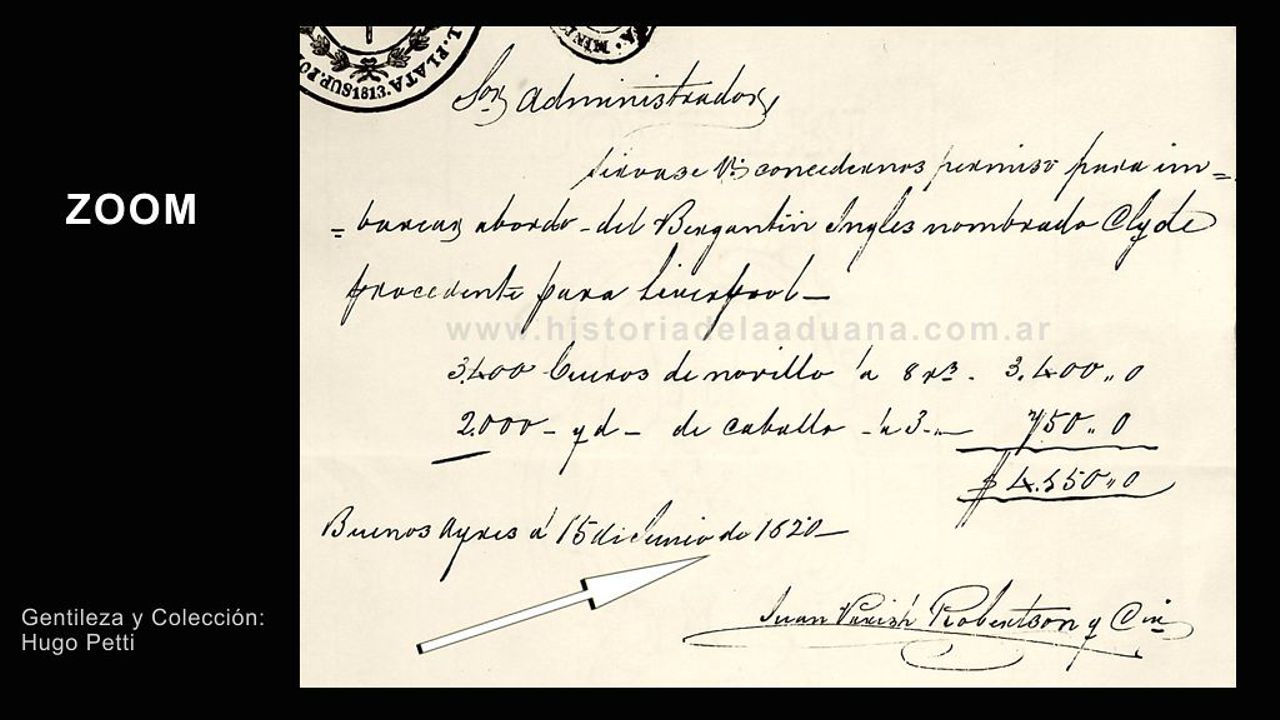 ZOOM
SUP. POD
1813.
L. PLATA
A. MINI
Sor Administrador
Sirvase V.S concedernos permiso para im=
=barcar abordo - del Bergantin Ingles nombrado Clyde
procedente para Liverpool —
www.historiadelaaduana.com.ar
3.400 Cueros de novillo á 8 rs. 3.400,, 0
2.000 - yd - de caballo - á 3 - 750,, 0
$ 4.150,, 0
Buenos Ayres á 15 de Junio de 1820 —
Juan Parish Robertson y Cia
Gentileza y Colección:
Hugo Petti